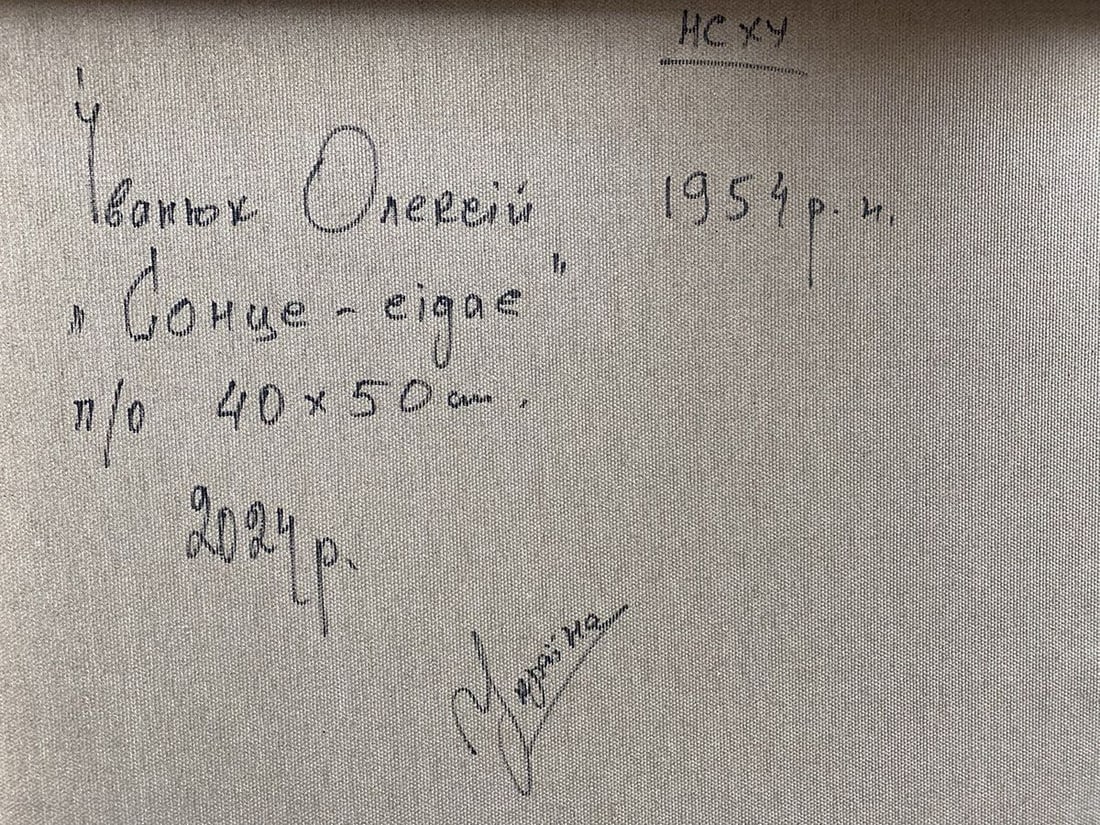 НСХУ
Іванюк Олексій 1954 р. н.
„ Сонце - сідає "
п/о 40 х 50 см.
2024 р.
Україна